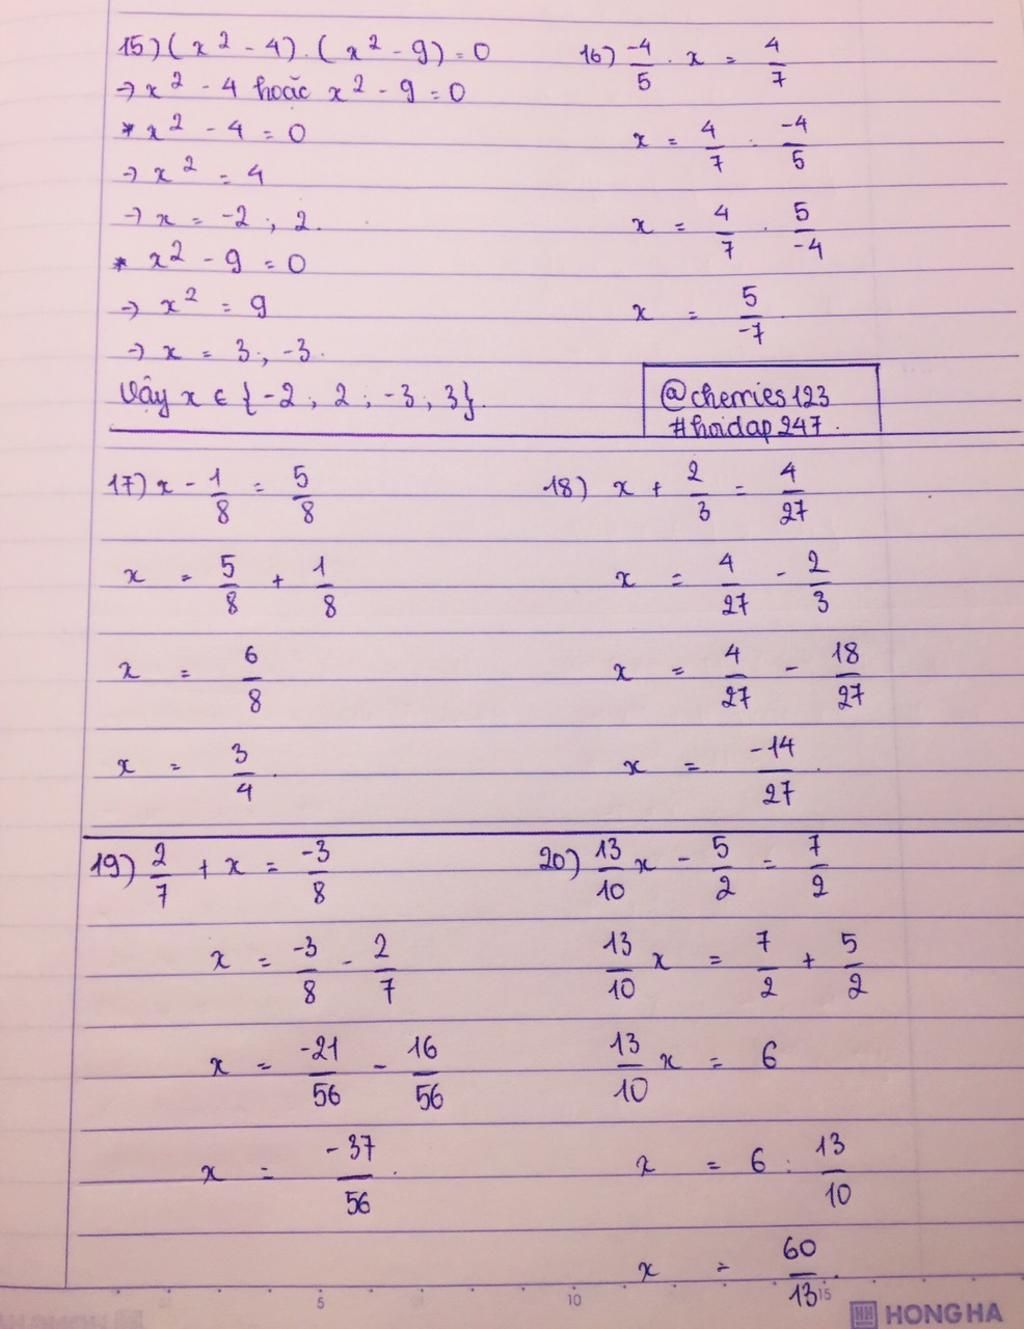 15) (x² - 4). (x² - 9) = 0
→ x² - 4 hoặc x² - 9 = 0
* x² - 4 = 0
→ x² = 4
→ x = -2 ; 2.
* x² - 9 = 0
→ x² = 9
→ x = 3 ; -3.
Vậy x ∈ {-2 ; 2 ; -3 ; 3}.
16) -4/5 . x = 4/7
x = 4/7 : -4/5
x = 4/7 . 5/-4
x = 5/-7
@cherries123
#hoidap247.
17) x - 1/8 = 5/8
x = 5/8 + 1/8
x = 6/8
x = 3/4.
18) x + 2/3 = 4/27
x = 4/27 - 2/3
x = 4/27 - 18/27
x = -14/27.
19) 2/7 + x = -3/8
x = -3/8 - 2/7
x = -21/56 - 16/56
x = -37/56.
20) 13/10 x - 5/2 = 7/2
13/10 x = 7/2 + 5/2
13/10 x = 6
x = 6 : 13/10
x = 60/13.
5 10 15
HONG HA